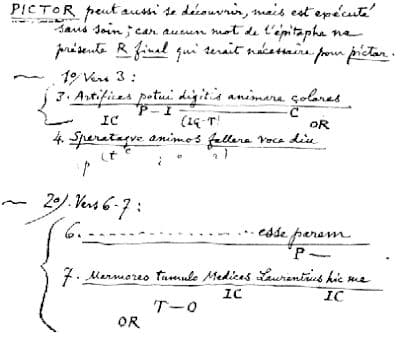 PICTOR peut aussi se découvrir, mais est exécuté
sans soin; car aucun mot de l'épitaphe ne
présente R final qui serait nécessaire pour pictor.
1o/ Vers 3:
3. Artifices potui digitis animare colores
P - I C
IC (IG-T) OR
4. Sperataque animos fallere voce diu
p (t c i o r)
2o/. Vers 6-7:
6. .................. esse parem
P —
7. Marmoreo tumulo Medices Laurentius hic me
IC IC
T-O
OR